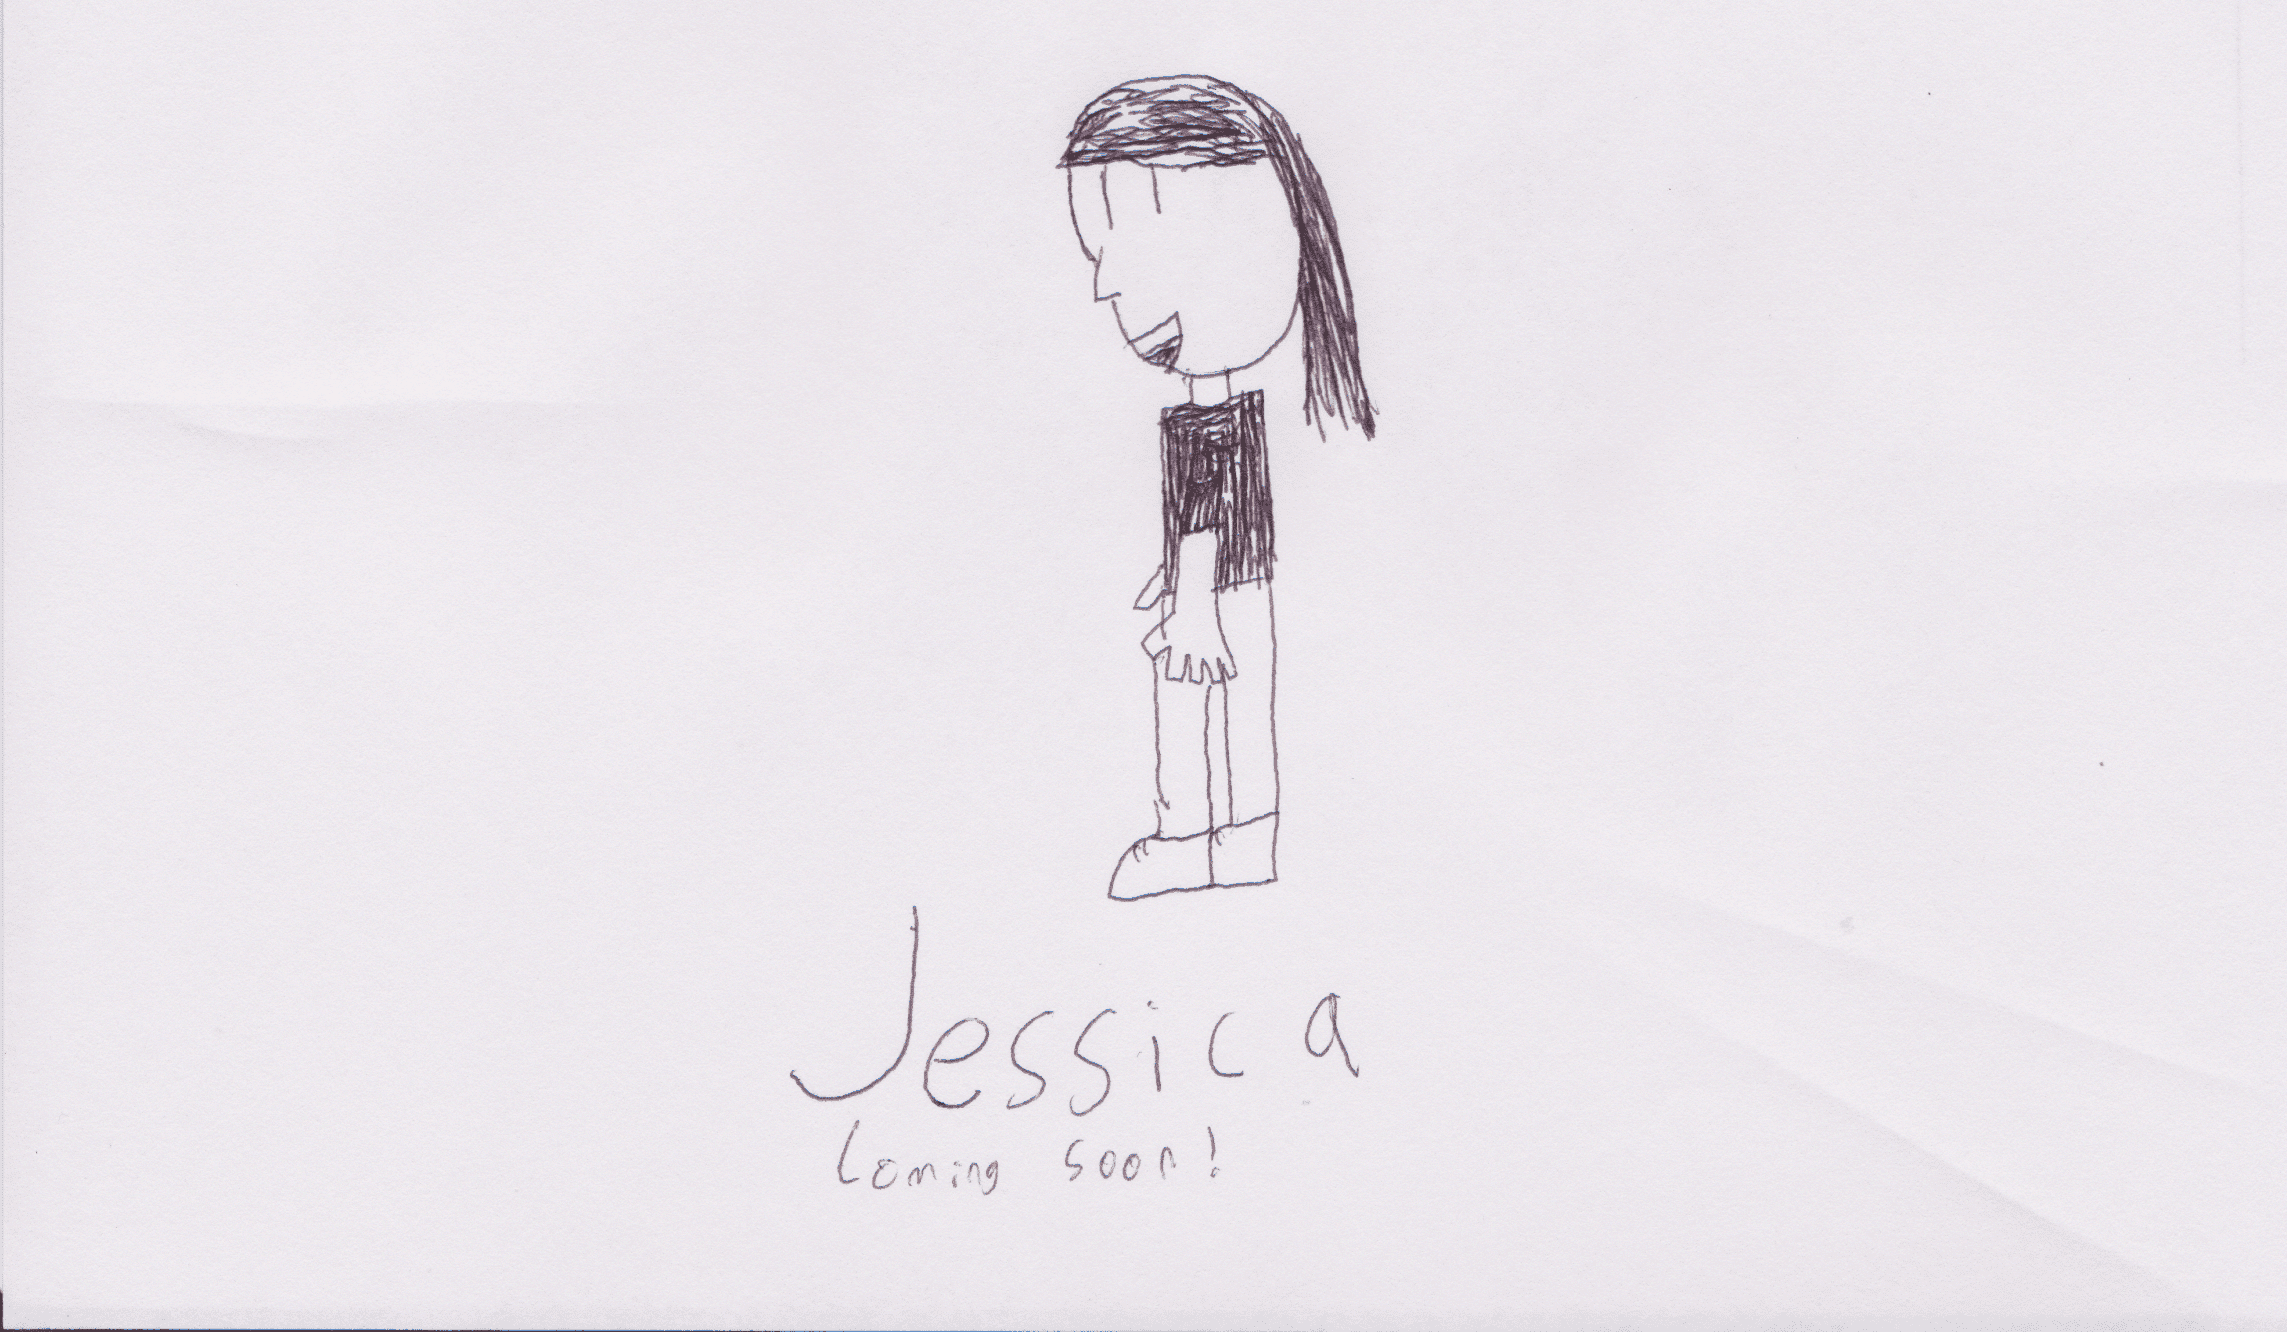 Jessica
Coming soon!